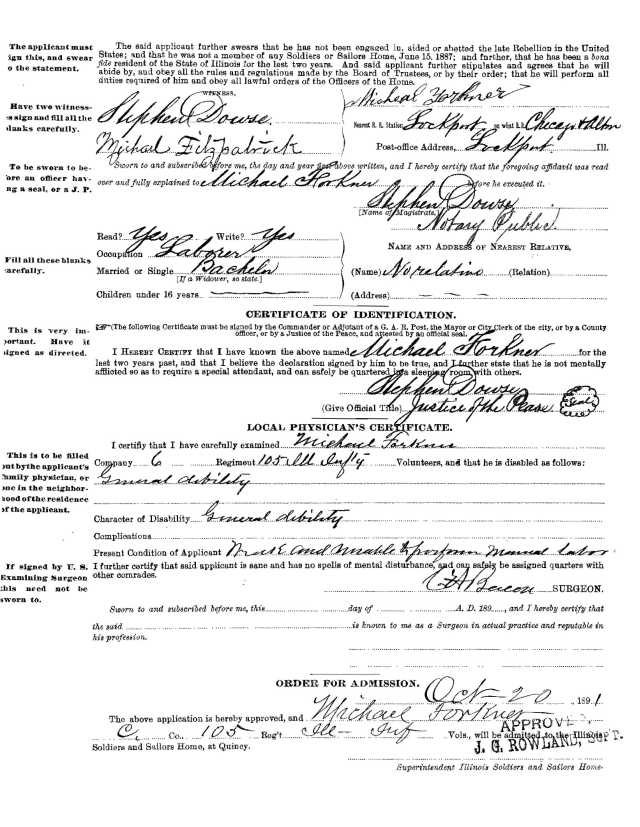 The applicant must sign this, and swear to the statement.
The said applicant further swears that he has not been engaged in, aided or abetted the late Rebellion in the United
States; and that he was not a member of any Soldiers or Sailors Home, June 15, 1887; and further, that he has been a bona
fide resident of the State of Illinois for the last two years. And said applicant further stipulates and agrees that he will
abide by, and obey all the rules and regulations made by the Board of Trustees, or by their order; that he will perform all
duties required of him and obey all lawful orders of the Officers of the Home.
WITNESS.
Micheal Forkner
Have two witness-
es sign and fill all the
blanks carefully.
Stephen Dowse.
Nearest R. R. Station, Lockport on what R. R. Chicago & Alton
Michael Fitzpatrick
Post-office Address, Lockport Ill.
To be sworn to be-
fore an officer hav-
ing a seal, or a J. P.
Sworn to and subscribed before me, the day and year first above written, and I hereby certify that the foregoing affidavit was read
over and fully explained to Michael Forkner before he executed it.
Stephen Dowse
[Name of Magistrate.]
Notary Public
Fill all these blanks
carefully.
Read? Yes Write? Yes
Occupation Laborer
Married or Single Bachelor
[If a Widower, so state.]
Children under 16 years.
NAME AND ADDRESS OF NEAREST RELATIVE,
(Name) No relatives (Relation)
(Address)
CERTIFICATE OF IDENTIFICATION.
This is very im-
portant. Have it
signed as directed.
(The following Certificate must be signed by the Commander or Adjutant of a G. A. R. Post, the Mayor or City Clerk of the city, or by a County
officer, or by a Justice of the Peace, and attested by an official seal.
I HEREBY CERTIFY that I have known the above named Michael Forkner for the
last two years past, and that I believe the declaration signed by him to be true, and I further state that he is not mentally
afflicted so as to require a special attendant, and can safely be quartered in a sleeping room with others.
Stephen Dowse
(Give Official Title) Justice of the Pease Seal
LOCAL PHYSICIAN'S CERTIFICATE.
This is to be filled
out by the applicant's
family physician, or
one in the neighbor-
hood of the residence
of the applicant.
I certify that I have carefully examined Michael Forkner
Company 6 Regiment 105 Ill Infty Volunteers, and that he is disabled as follows:
General dibility
Character of Disability General dibility
Complications
Present Condition of Applicant and unable to perform manual labor
If signed by U. S.
Examining Surgeon
this need not be
sworn to.
I further certify that said applicant is sane and has no spells of mental disturbance, and can safely be assigned quarters with
other comrades.
Bacon SURGEON.
Sworn to and subscribed before me, this day of A. D. 189 , and I hereby certify that
the said is known to me as a Surgeon in actual practice and reputable in
his profession.
ORDER FOR ADMISSION.
Oct 20, 1891
The above application is hereby approved, and Michael Forkner
C. Co., 105 Reg't Ill Inf Vols., will be admitted to the Illinois
Soldiers and Sailors Home, at Quincy.
APPROVED.
J. G. ROWLAND, SUPT.
Superintendent Illinois Soldiers and Sailors Home